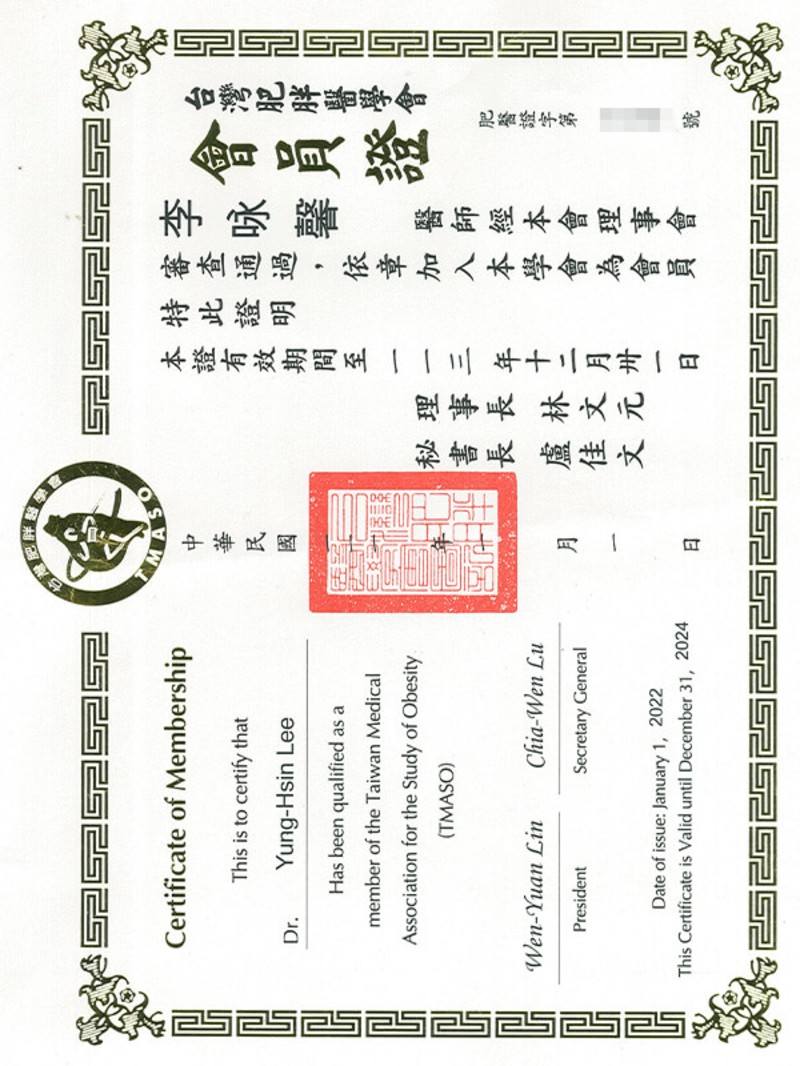 台灣肥胖醫學會
TMASO
Certificate of Membership
This is to certify that
Dr. Yung-Hsin Lee
Has been qualified as a
member of the Taiwan Medical
Association for the Study of Obesity
(TMASO)
Wen-Yuan Lin Chia-Wen Lu
President Secretary General
Date of issue: January 1, 2022
This Certificate is Valid until December 31, 2024
台灣肥胖醫學會
會員證
肥醫證字第 號
李咏馨 醫師經本會理事會
審查通過，依章加入本學會為會員
特此證明
本證有效期間至一一三年十二月卅一日
理事長 林文元
秘書長 盧佳文
中華民國一一一年一月一日